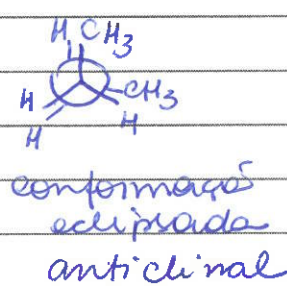 H CH3
H CH3
H H
conformação
eclipsada
anticlinal